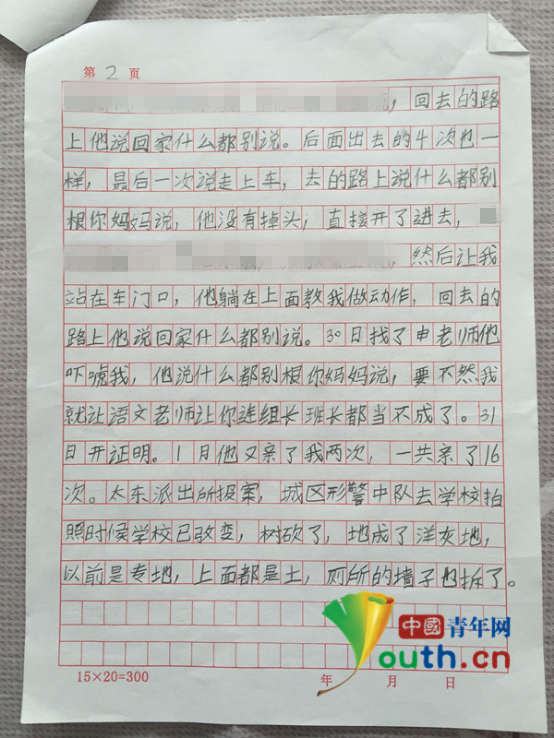 第 2 页
，回去的路
上他说回家什么都别说。后面出去的4次也一
样，最后一次说走上车，去的路上说什么都别
根你妈妈说，他没有掉头，直接开了进去，
，然后让我
站在车门口，他躺在上面教我做动作，回去的
路上他说回家什么都别说。30日找了申老师他
吓唬我，他说什么都别根你妈妈说，要不然我
就让语文老师让你连组长班长都当不成了。31
日开证明。1月他又亲了我两次，一共亲了16
次。太东派出所投案，城区形警中队去学校拍
照时候学校已改变，树砍了，地成了洋灰地，
以前是专地，上面都是土，厕所的墙子也拆了。
中國青年网
youth.cn
15×20=300 年 月 日